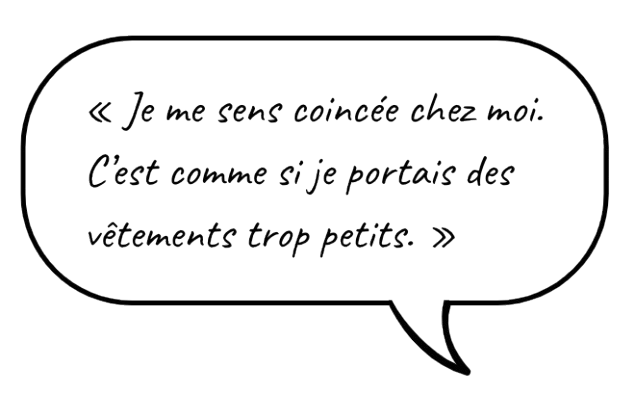 « Je me sens coincée chez moi.
C’est comme si je portais des
vêtements trop petits. »